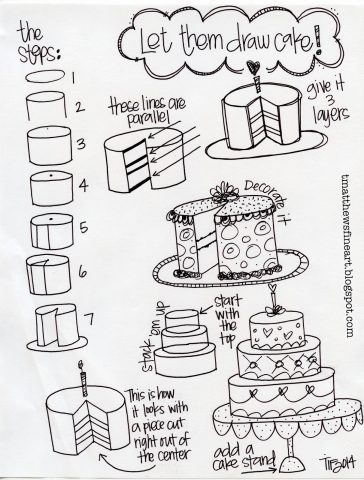 the
steps:
Let them draw cake!
1
2
3
4
5
6
7
these lines are
parallel
give it
3
layers
Decorate
it
tmatthewsfineart.blogspot.com
stack 'em up
start
with
the
top
This is how
it looks with
a piece cut
right out of
the center
add a
cake stand
TM2014